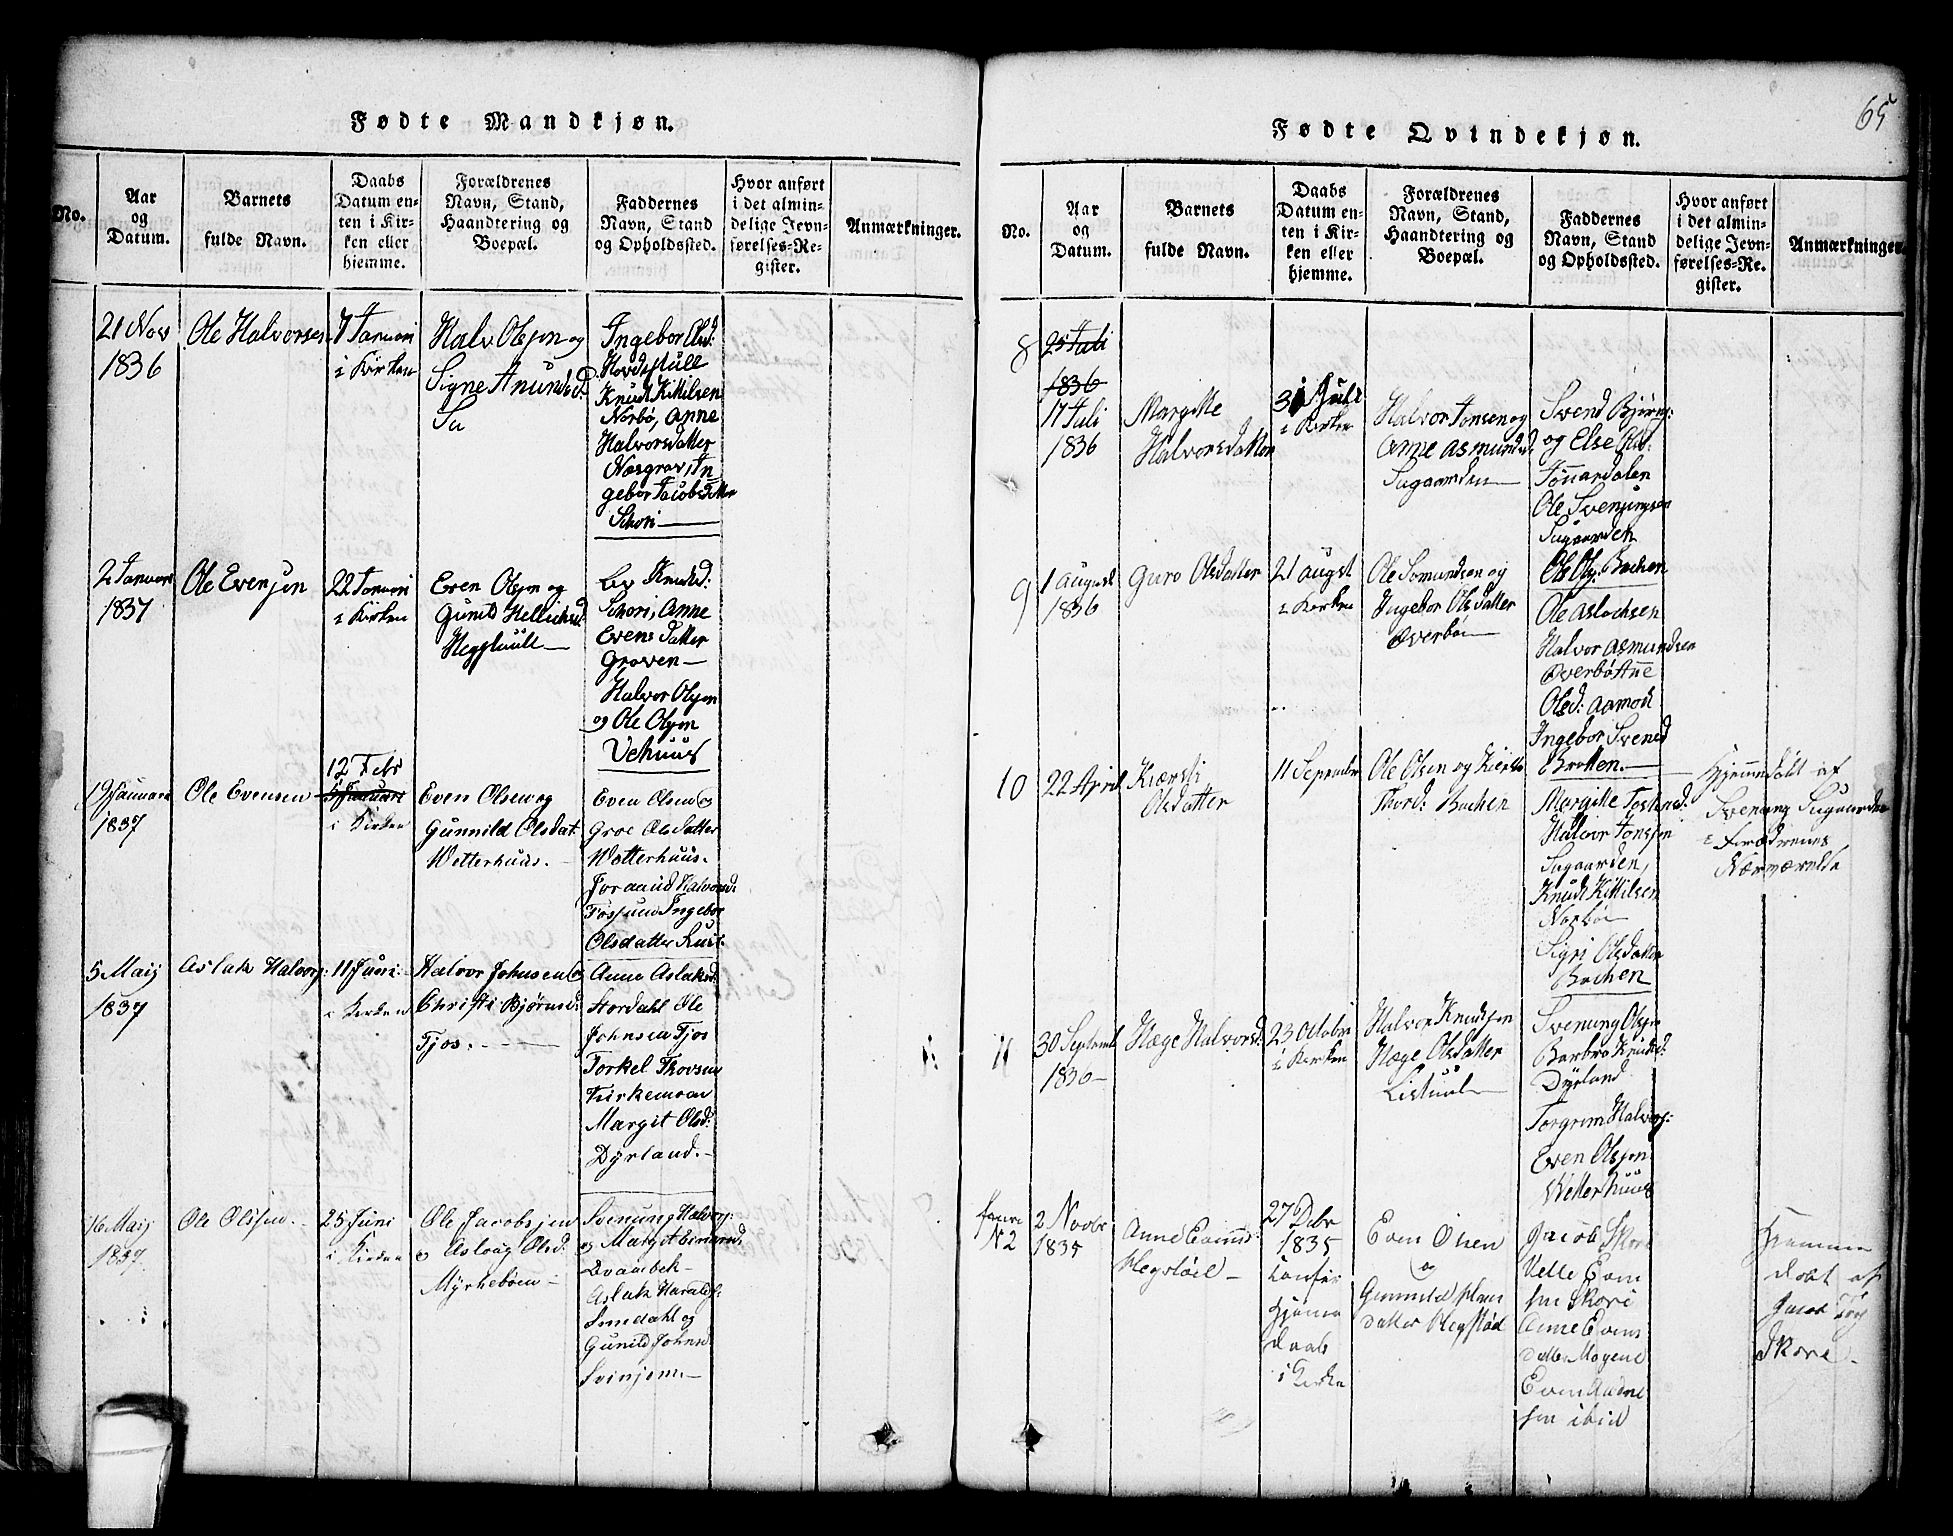 65
Fødte Mandkjøn.
No.
Aar
og
Datum.
Barnets
fulde Navn.
Daabs
Datum en-
ten i Kir-
ken eller
hjemme.
Forældrenes
Navn, Stand,
Haandtering og
Boepæl.
Faddernes
Navn, Stand
og Opholdssted.
Hvor anført
i det almin-
delige Jevn-
førelses-Re-
gister.
Anmærkninger.
21 Nov
1836
Ole Halvorsen
7 Januari
i Kirken
Halv Olsen og
Signe Anunds D.
Su
Ingebor Olsd:
Hovdestull
Knud Kittilsen
Norbø, Anne
Halvorsdatter
Næsgrav, In
gebor Jacobsdatter
Schori
2 Januari
1837
Ole Evensen
22 Januari
i Kirken
Even Olsen og
Gunild Hellichsd
Hegstuill
Liv Knudsd:
Schori, Anne
Evens Datter
Groven
Halvor Olsen
og Ole Olsen
Vehuus
19 Januari
1837
Ole Evensen
12 Febr
i Kirken
Even Olsen og
Gunnild Olsdat
Wetterhuus.
Even Olsen og
Groe Olsdatter
Wetterhuus.
Joraand Halvorsd:
Fossum Ingebor
Olsdatter
5 Maij
1837
Aslak Halvors:
11 Juni
i Kirken
Halvor Johnsen og
Christi Bjørnsd:
Tjos.
Anne Aslaksd:
Stordahl Ole
Johnsen Tjos
Torkel Thovsen
Kirkemoen
Margit Olsd:
Dyrland.
16 Maij
1837
Ole Olssen
25 Juni
i Kirken
Ole Jacobsen
og Aslaug Olsd:
Myrkebøen
Svenung Halvors:
og Margit Einarsd:
Kvambek
Aslak Haralds:
Sundahl og
Gunild Johnsd
Svinjom.
Fødte Qvindekjøn.
No.
Aar
og
Datum.
Barnets
fulde Navn.
Daabs
Datum en-
ten i Kir-
ken eller
hjemme.
Forældrenes
Navn, Stand,
Haandtering og
Boepæl.
Faddernes
Navn, Stand
og Opholdssted.
Hvor anført
i det almin-
delige Jevn-
førelses-Re-
gister.
Anmærkninger
8
25 Juli
1836
17 Juli
1836
Margitte
Halvorsdatter
31 Juli
i Kirken
Halvor Jonsen og
Anne Asmundsd.
Sugaarden
Svend Bjørns:
og Else Ols:
Jønnardalen
Ole Svenungsen
Sugaarden
Ols Bachen
9
1 August
1836
Guro Olsdatter
21 August
i Kirken
Ole Somundsen og
Ingebor Olsdatter
Øverbøe
Ole Aslachsen
Halvor Asmundsen
Øverbø Anne
Olsd: Aamod
Ingebor Svensd
Bratten.
10
22 April
Kiersti
Olsdatter
11 September
Ole Olsen og Kiersti
Thord: Bachen
Margitte Tostensd:
Halvor Jonsen
Sugaarden,
Knud Kittilsen
Norbø
Sigri Olsdatter
Bachen
Hjemmedøbt af
Svenung Sugaarden
i Forældrenes
Nærværelse
11
30 Septembr
1836
Hæge Halvorsd:
23 Octobr
i Kirken
Halvor Knudsen
Hæge Olsdatter
Listuul
Svenung Olsen
Barbro Knudsd:
Dyrland
Torgrim Halvors:
Even Olsen
Wetterhuus
N 2
2 Novbr
1835
Anne Evens:
Hegstøil
27 Debr
1835
Confir
hjemme
daab
i Kirke
Even Olsen
og
Gunnild
datter Hegstød
Jacob Skori
Velle Even
sen Skori
Anne Evens
datter Mogene
Even Andre
sen ibid
Hjemme
døbt af
Jacob
Skori.